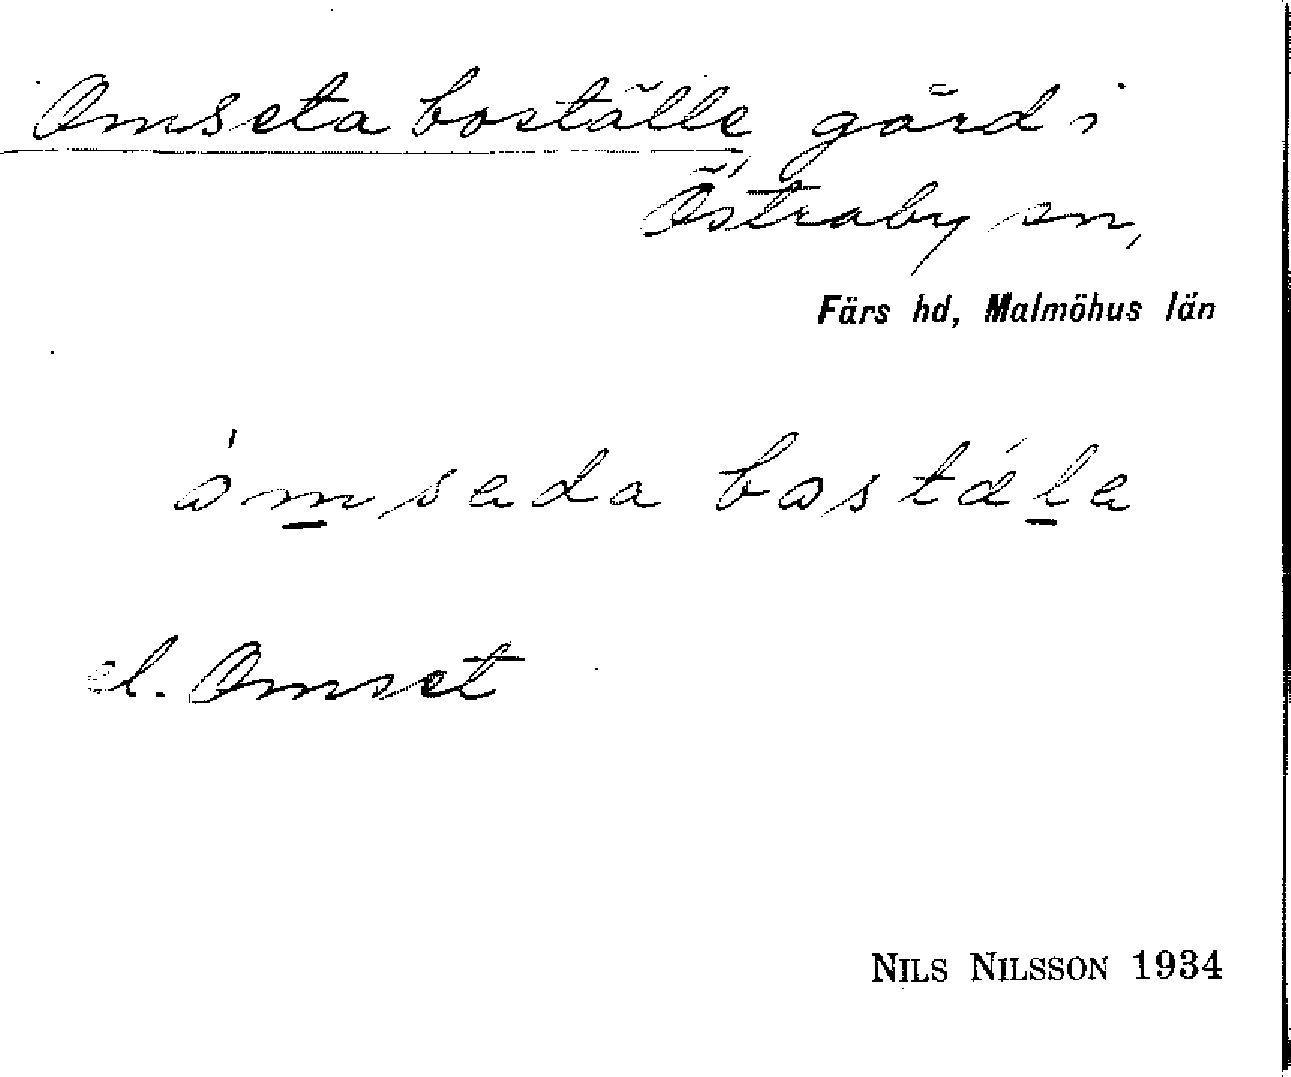 Omseta boställe gård i
Östraby sn,
Färs hd, Malmöhus län
ómsada bostála
el. Omset
NILS NILSSON 1934